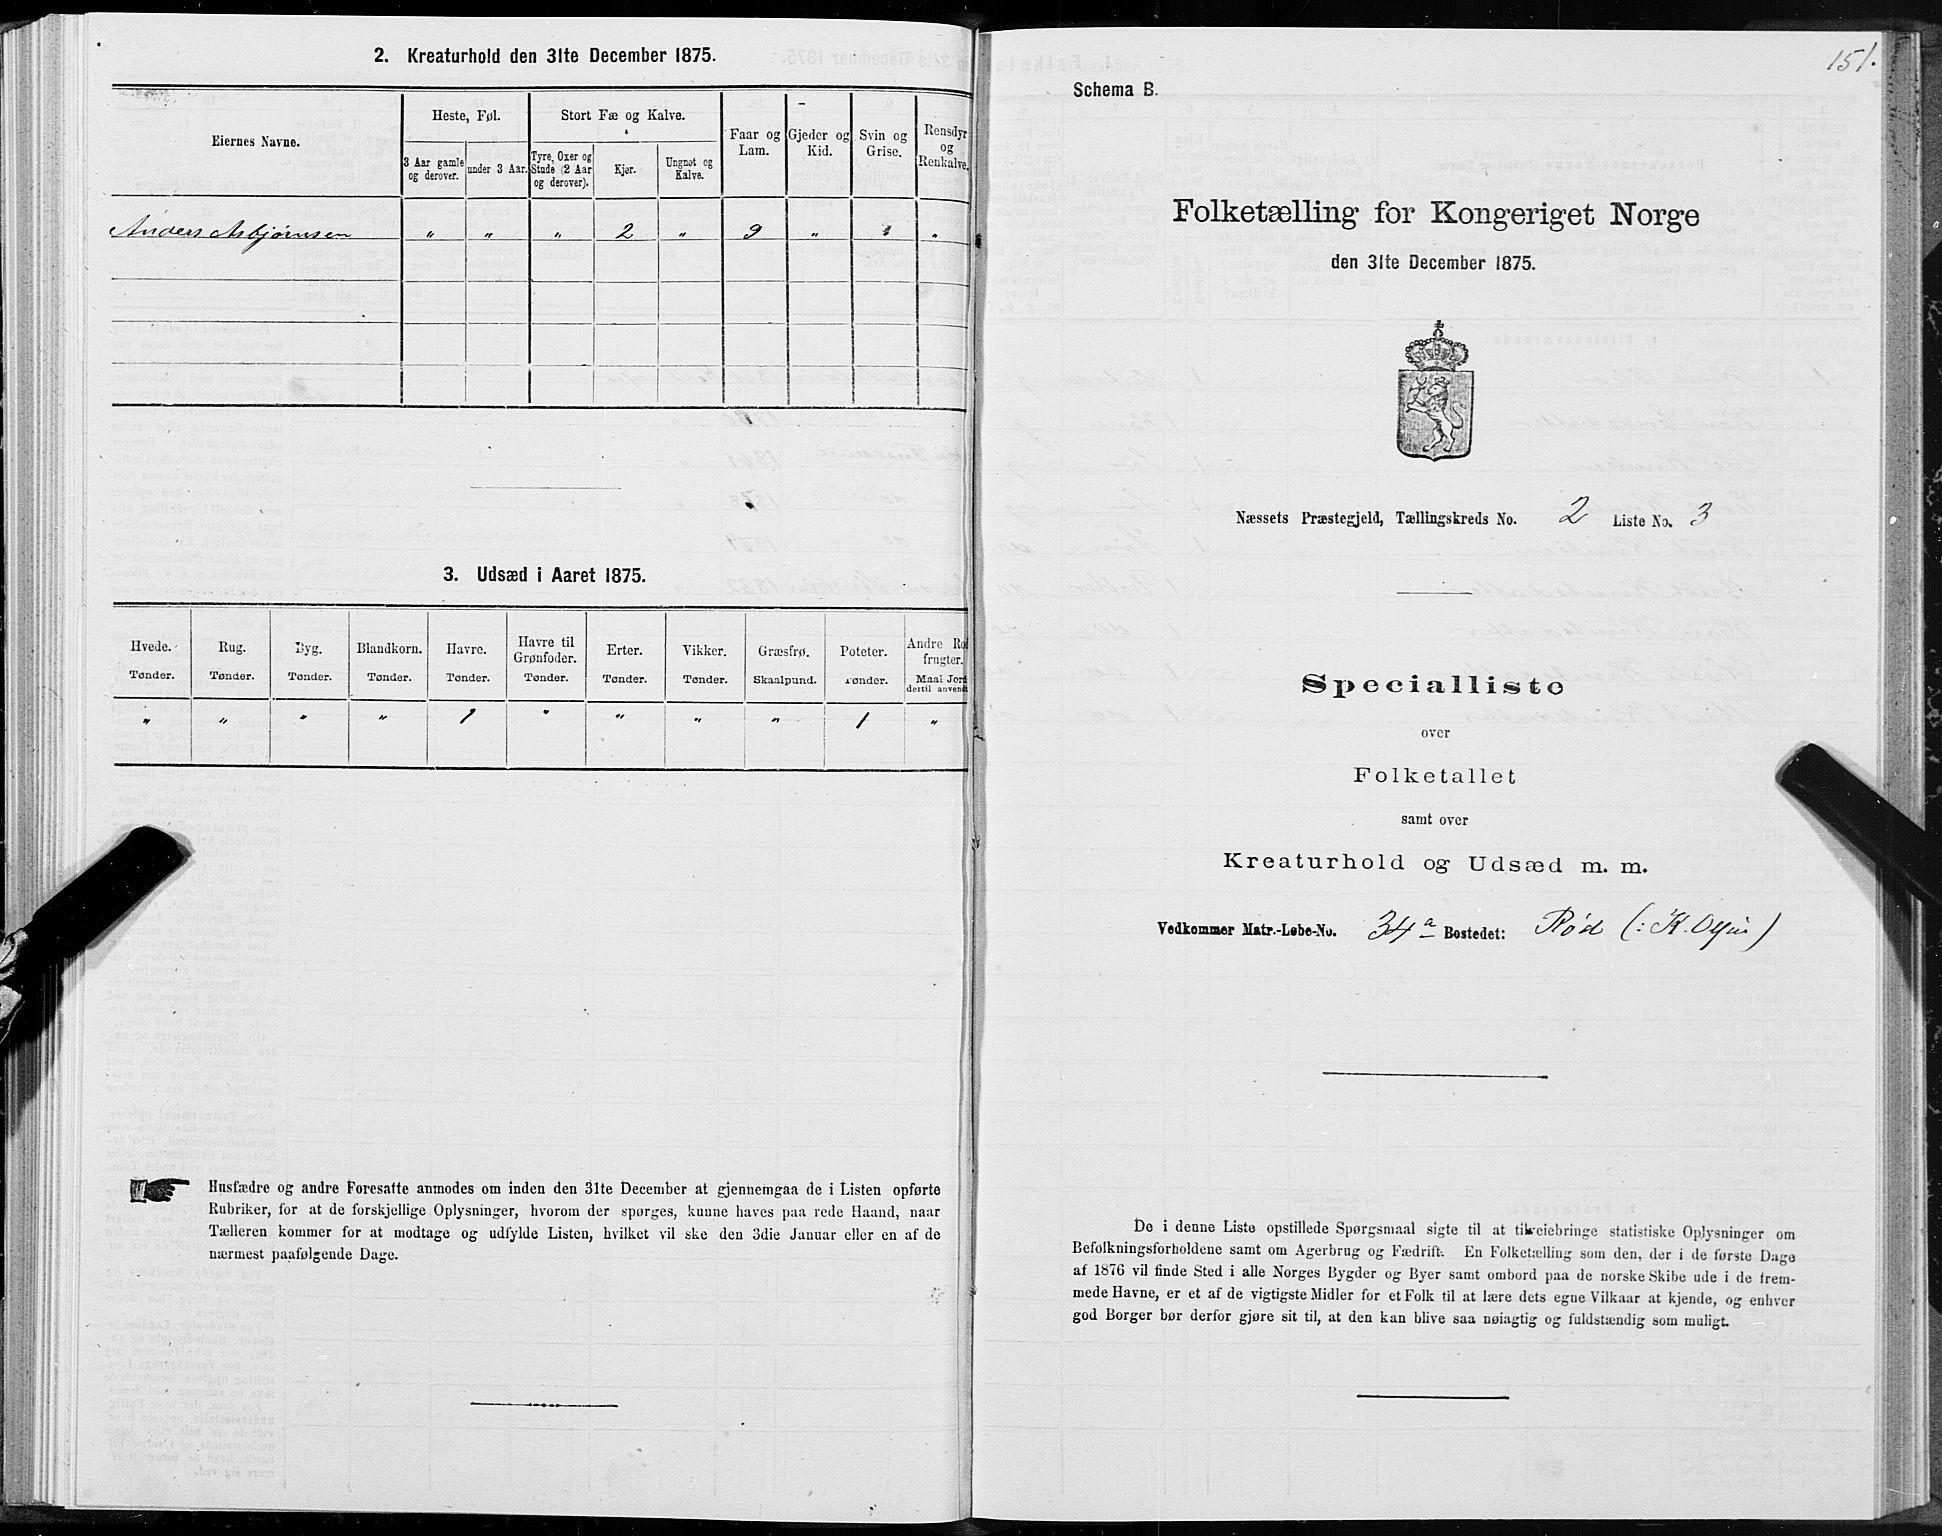 2. Kreaturhold den 31te December 1875.
Eiernes Navne.
Heste, Føl.
Stort Fæ og Kalve.
Faar og
Lam.
Gjeder og
Kid.
Svin og
Grise.
Rensdyr
og
Renkalve.
3 Aar gamle
og derover.
under 3 Aar.
Tyre, Oxer og
Stude (2 Aar
og derover).
Kjør.
Ungnøt og
Kalve.
Anders Asbjørnsen " " " 2 " 9 " "
3. Udsæd i Aaret 1875.
Hvede.
Tønder.
Rug.
Tønder.
Byg.
Tønder.
Blandkorn.
Tønder.
Havre.
Tønder.
Havre til
Grønfoder.
Tønder.
Erter.
Tønder.
Vikker.
Tønder.
Græsfrø.
Skaalpund.
Poteter.
Tønder.
Andre Rod
frugter.
Maal Jord
dertil anvendt
" " " " 1 " " " " 1 "
Husfædre og andre Foresatte anmodes om inden den 31te December at gjennemgaa de i Listen opførte
Rubriker, for at de forskjellige Oplysninger, hvorom der spørges, kunne haves paa rede Haand, naar
Tælleren kommer for at modtage og udfylde Listen, hvilket vil ske den 3die Januar eller en af de
nærmest paafølgende Dage.
151.
Schema B.
Folketælling for Kongeriget Norge
den 31te December 1875.
Næssets Præstegjeld, Tællingskreds No. 2 Liste No. 3
Specialliste
over
Folketallet
samt over
Kreaturhold og Udsæd m. m.
Vedkommer Matr.-Løbe-No. 34a Bostedet: Rød (: K.
De i denne Liste opstillede Spørgsmaal sigte til at tilveiebringe statistiske Oplysninger om
Befolkningsforholdene samt om Agerbrug og Fædrift. En Folketælling som den, der i de første Dage
af 1876 vil finde Sted i alle Norges Bygder og Byer samt ombord paa de norske Skibe ude i de frem-
mede Havne, er et af de vigtigste Midler for et Folk til at lære dets egne Vilkaar at kjende, og enhver
god Borger bør derfor gjøre sit til, at den kan blive saa nøiagtig og fuldstændig som muligt.